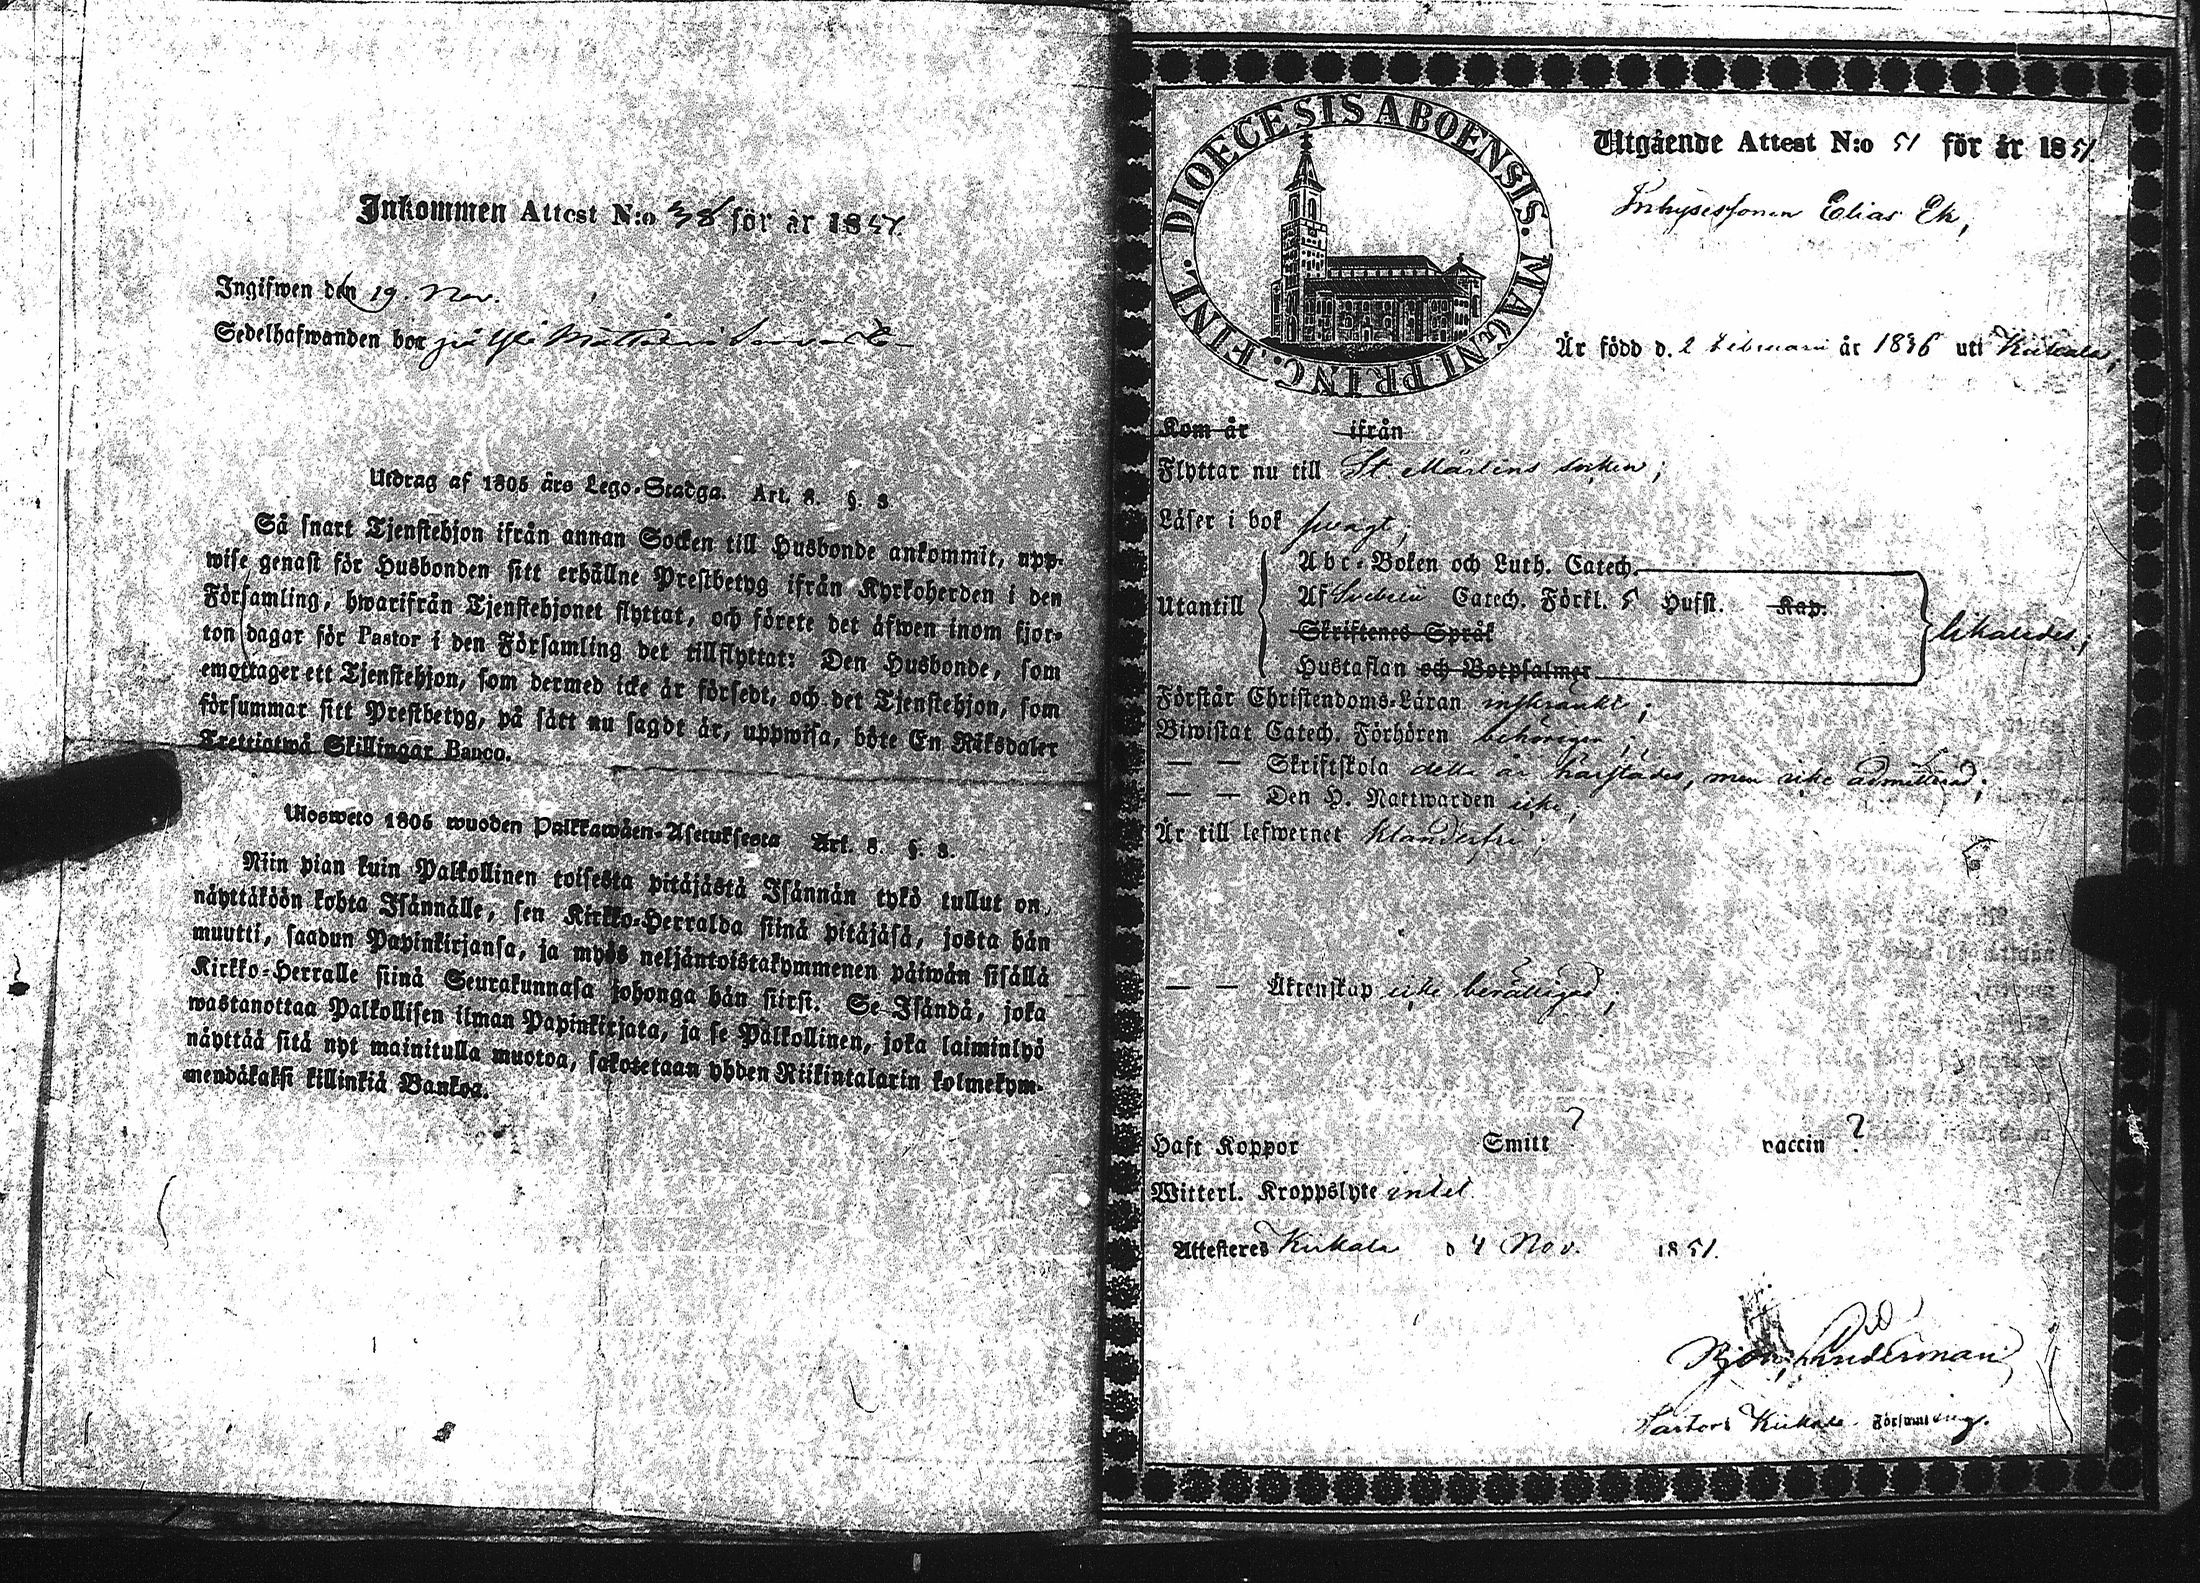 Inkommen Attest N:o 38 för år 1851.
Ingifwen den 19. Nov.
Sedelhafwanden bor på Yli
Utdrag af 1805 års Lego-Stadga. Art. 8. §. 8.
Så snart Tjenstehjon ifrån annan Socken till Husbonde ankommit, upp-
wise genast för Husbonden sitt erhållne Prestbetyg ifrån Kyrkoherden i den
Församling, hwarifrån Tjenstehjonet flyttat, och förete det äfwen inom fjor-
ton dagar för Pastor i den Församling det tillflyttat: Den Husbonde, som
emottager ett Tjenstehjon, som dermed icke är försedt, och det Tjenstehjon, som
försummar sitt Prestbetyg, på sätt nu sagdt är, uppwisa, böte En Riksdaler
Trettiotwå Skillingar Banco.
Ulosweto 1805 wuoden Palkkawäen-Asetuksesta Art. 8. §. 8.
Niin pian kuin Palkollinen toisesta pitäjästä Isännän tykö tullut on,
näyttäköön kohta Isännälle, sen Kirkko-Herralda siinä pitäjäsä, josta hän
muutti, saadun Papinkirjansa, ja myös neljäntoistakymmenen päiwän sisällä
Kirkko-Herralle siinä Seurakunnasa johonga hän siirsi. Se Isändä, joka
wastanottaa Palkollisen ilman Papinkirjata, ja se Palkollinen, joka laiminlyö
näyttää sitä nyt mainitulla muotoa, sakotetaan yhden Riikintalarin kolmekym-
mendäkaksi killinkiä Bankoa.
DIOECESIS ABOENSIS. MAGNI PRINC. FINL.
Utgående Attest N:o 51 för år 1851.
Inhysessonen Elias Ek,
Är född d. 2 Februari år 1836 uti Kiikala,
Kom år ifrån
Flyttar nu till St. Mårtens socken;
Läser i bok swagt;
Utantill
Abc-Boken och Luth. Catech.
Af Svebelii Catech. Förkl. 5 Hufst. Kap.
Skriftenes Språk
Hustaflan och Botpsalmer
likaledes;
Förstår Christendoms-Läran inskränkt;
Biwistat Catech. Förhören behörigen;
— — Skriftskola detta år härstädes, men icke admitterad;
— — Den H. Nattwarden icke;
Är till lefwernet klanderfri;
— — Äktenskap icke berättigad;
Haft Koppor Smitt ? vaccin ?
Witterl. Kroppslyte intet
Attesteras Kiikala d 4 Nov. 1851.
Linderman
Pastor i Kiikala Församling.